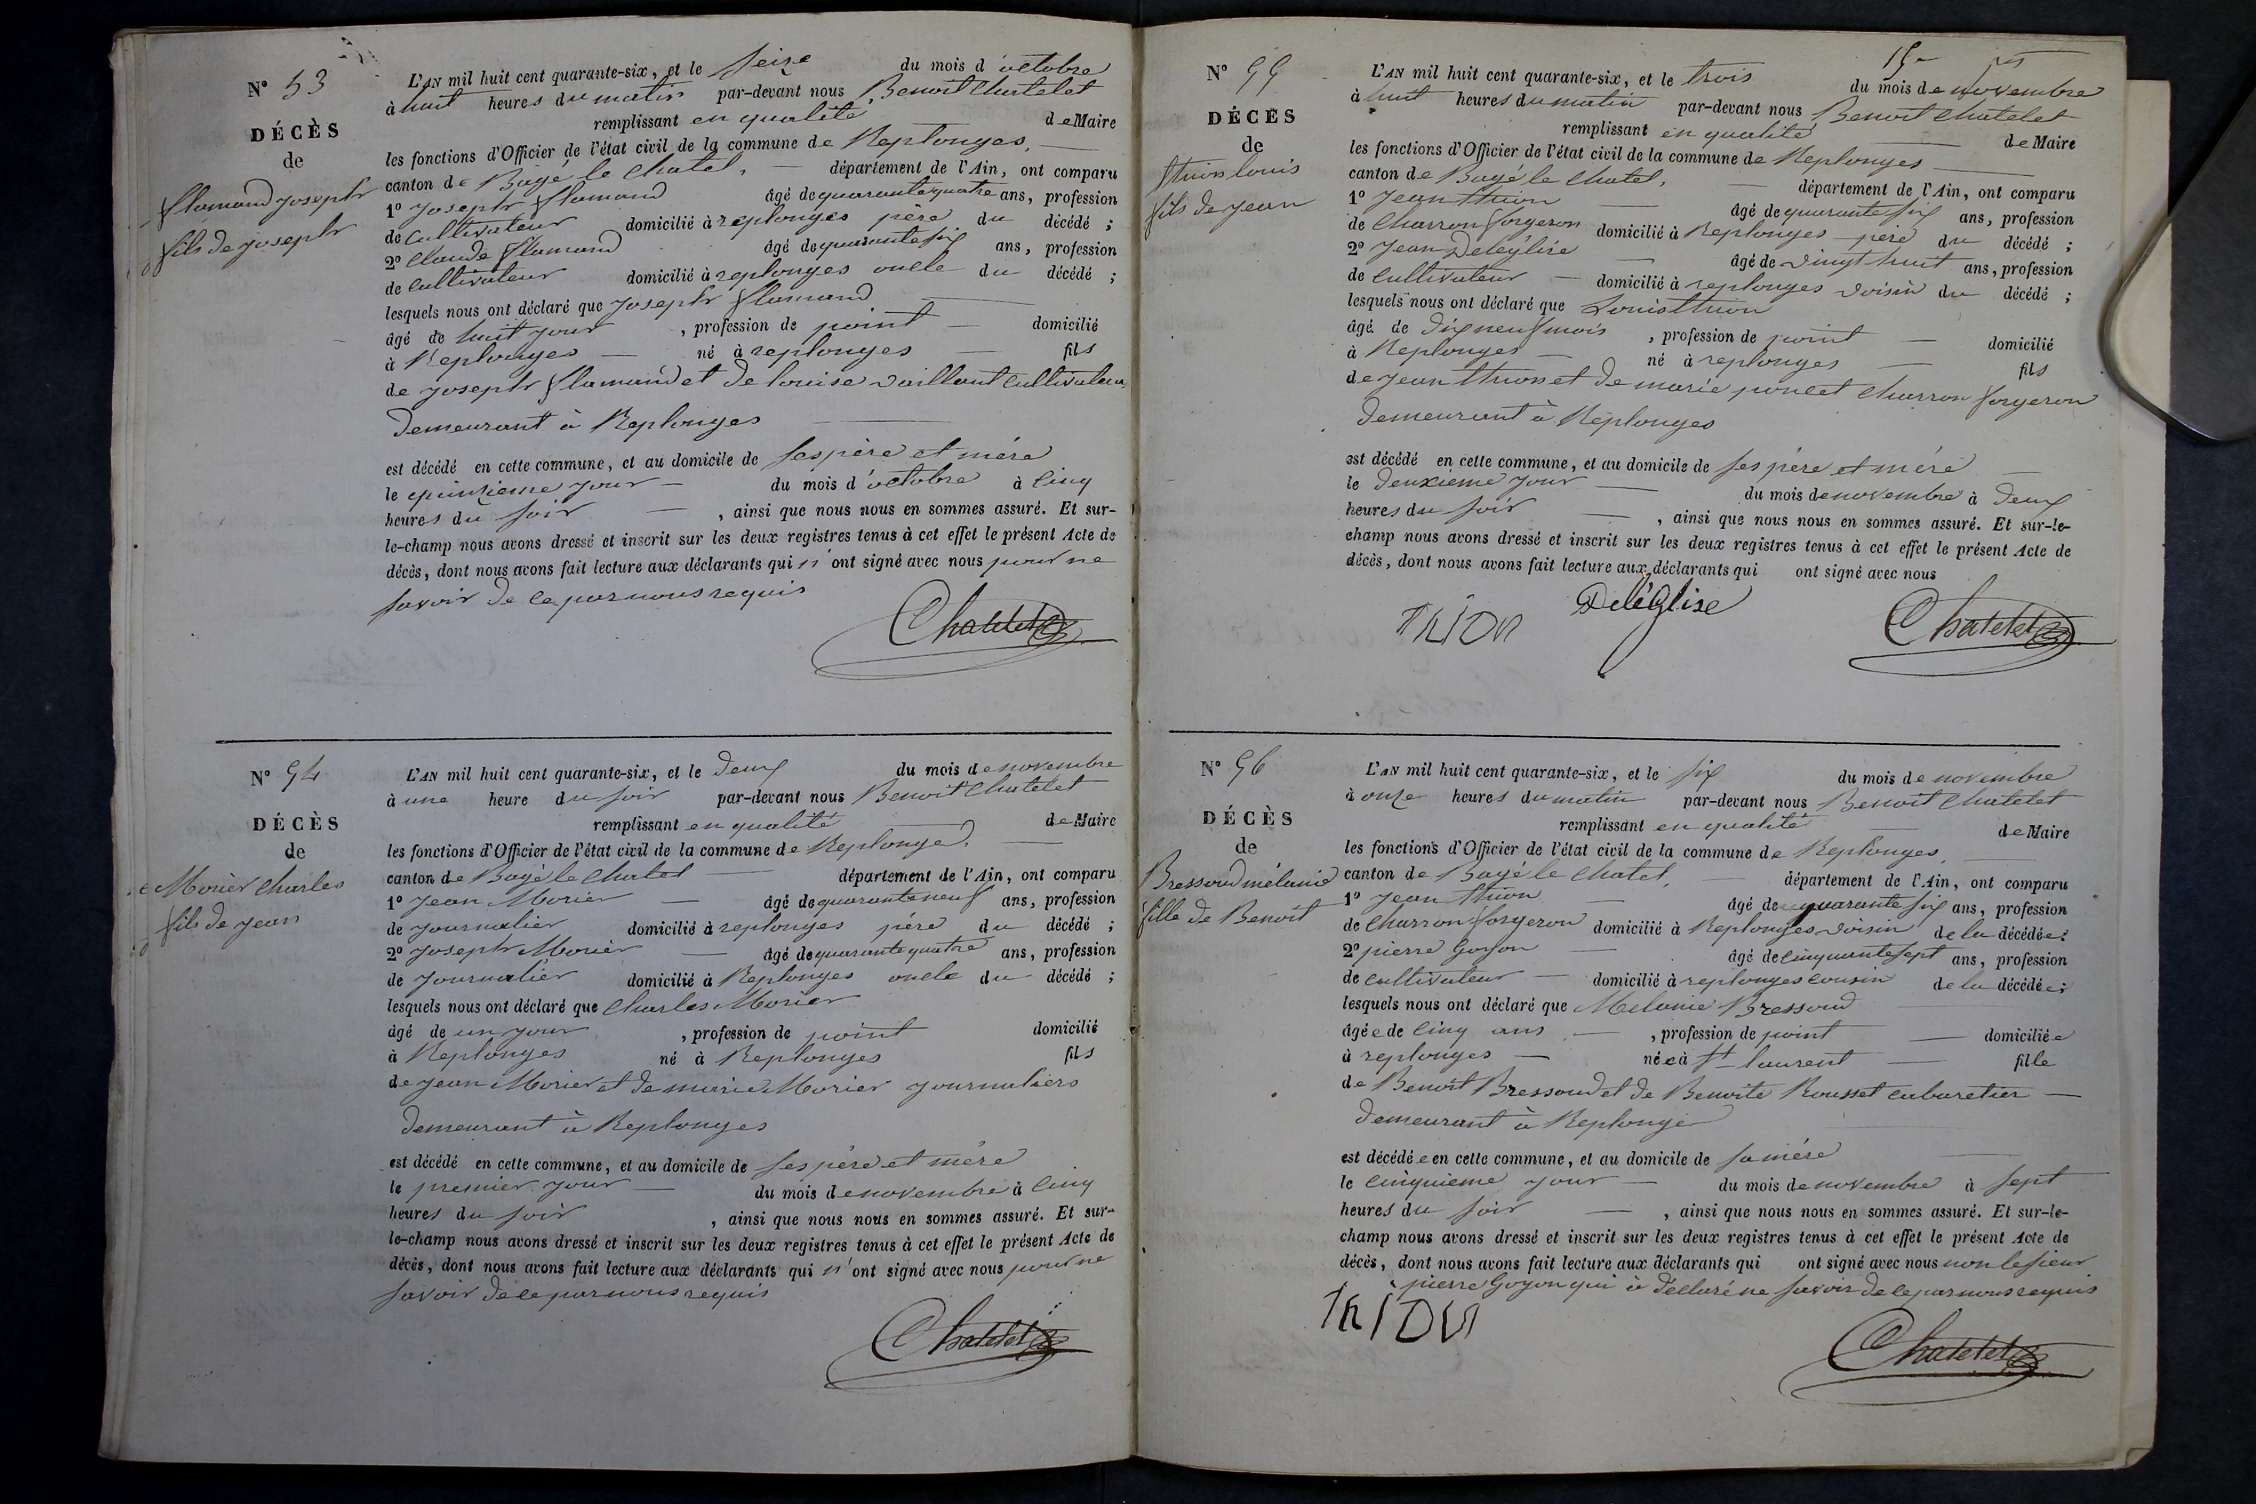 N° 53
DÉCÈS
de
flamand joseph
fils de joseph
L'AN mil huit cent quarante-six, et le seize du mois d'octobre
à huit heures du matin par-devant nous Benoit Chatelet
remplissant en qualité de Maire
les fonctions d'Officier de l'état civil de la commune de Replonges,
canton de Bagé le Chatel, département de l'Ain, ont comparu
1° joseph flamand âgé de quarante quatre ans, profession
de cultivateur domicilié à replonges père du décédé ;
2° Claude flamand âgé de quarante six ans, profession
de cultivateur domicilié à replonges oncle du décédé ;
lesquels nous ont déclaré que joseph flamand
âgé de huit jour , profession de point domicilié
à Replonges né à replonges fils
de joseph flamand et de louise vaillant cultivateurs
demeurant à Replonges
est décédé en cette commune, et au domicile de ses père et mére
le quinzieme jour du mois d'octobre à cinq
heures du soir , ainsi que nous nous en sommes assuré. Et sur-
le-champ nous avons dressé et inscrit sur les deux registres tenus à cet effet le présent Acte de
décès, dont nous avons fait lecture aux déclarants qui n'ont signé avec nous pour ne
savoir de ce par nous requis
Chatelet
N° 54
DÉCÈS
de
Morier Charles
fils de jean
L'AN mil huit cent quarante-six, et le deux du mois de novembre
à une heure du soir par-devant nous Benoit Chatelet
remplissant en qualité de Maire
les fonctions d'Officier de l'état civil de la commune de Replonges,
canton de Bagé le Chatel département de l'Ain, ont comparu
1° jean Morier âgé de quarante neuf ans, profession
de journalier domicilié à replonges père du décédé ;
2° joseph Morier âgé de quarante quatre ans, profession
de journalier domicilié à Replonges oncle du décédé ;
lesquels nous ont déclaré que Charles Morier
âgé de un jour , profession de point domicilié
à Replonges né à Replonges fils
de jean Morier et de marie Morier journaliers
demeurant à Replonges
est décédé en cette commune, et au domicile de ses père et mère
le premier jour du mois de novembre à cinq
heures du soir , ainsi que nous nous en sommes assuré. Et sur-
le-champ nous avons dressé et inscrit sur les deux registres tenus à cet effet le présent Acte de
décès, dont nous avons fait lecture aux déclarants qui n'ont signé avec nous pour ne
savoir de ce par nous requis
Chatelet
N° 55
DÉCÈS
de
thion louis
fils de jean
L'AN mil huit cent quarante-six, et le trois du mois de novembre
à huit heures du matin par-devant nous Benoit Chatelet
remplissant en qualité de Maire
les fonctions d'Officier de l'état civil de la commune de Replonges
canton de Bagé le Chatel, département de l'Ain, ont comparu
1° jean thion âgé de quarante six ans, profession
de Charron forgeron domicilié à Replonges père du décédé ;
2° jean Deléglise âgé de vingt huit ans, profession
de cultivateur domicilié à replonges voisin du décédé ;
lesquels nous ont déclaré que Louis thion
âgé de dix neuf mois , profession de point domicilié
à Replonges né à replonges fils
de jean thion et de marie poncet Charron forgeron
demeurant à Replonges
est décédé en cette commune, et au domicile de ses père et mére
le deuxieme jour du mois de novembre à deux
heures du soir , ainsi que nous nous en sommes assuré. Et sur-le-
champ nous avons dressé et inscrit sur les deux registres tenus à cet effet le présent Acte de
décès, dont nous avons fait lecture aux déclarants qui ont signé avec nous
Thion Deléglise Chatelet
N° 56
DÉCÈS
de
Bressoud mélanie
fille de Benoit
L'AN mil huit cent quarante-six, et le six du mois de novembre
à onze heures du matin par-devant nous Benoit Chatelet
remplissant en qualité de Maire
les fonctions d'Officier de l'état civil de la commune de Replonges,
canton de Bagé le Chatel, département de l'Ain, ont comparu
1° jean thion âgé de quarante six ans, profession
de Charron forgeron domicilié à Replonges voisin de la décédée ;
2° pierre Goyon âgé de cinquante sept ans, profession
de cultivateur domicilié à replonges cousin de la décédée ;
lesquels nous ont déclaré que Melanie Bressoud
âgée de cinq ans , profession de point domiciliée
à replonges née à St laurent fille
de Benoit Bressoud et de Benoite Rousset cabaretier
demeurant à Replonges
est décédée en cette commune, et au domicile de sa mére
le cinquieme jour du mois de novembre à sept
heures du soir , ainsi que nous nous en sommes assuré. Et sur-le-
champ nous avons dressé et inscrit sur les deux registres tenus à cet effet le présent Acte de
décès, dont nous avons fait lecture aux déclarants qui ont signé avec nous non le sieur
pierre Goyon qui à déclaré ne savoir de ce par nous requis
Thion Chatelet